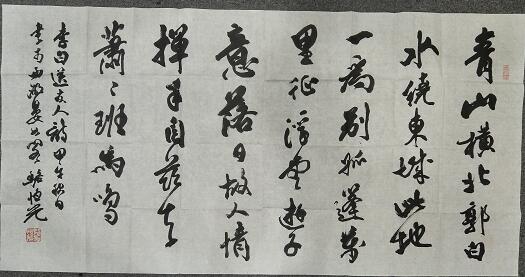 青山横北郭白
水绕东城此地
一为别孤蓬万
里征浮云游子
意落日故人情
挥手自兹去
萧々班马鸣
李白送友人诗甲午秋日
书于西